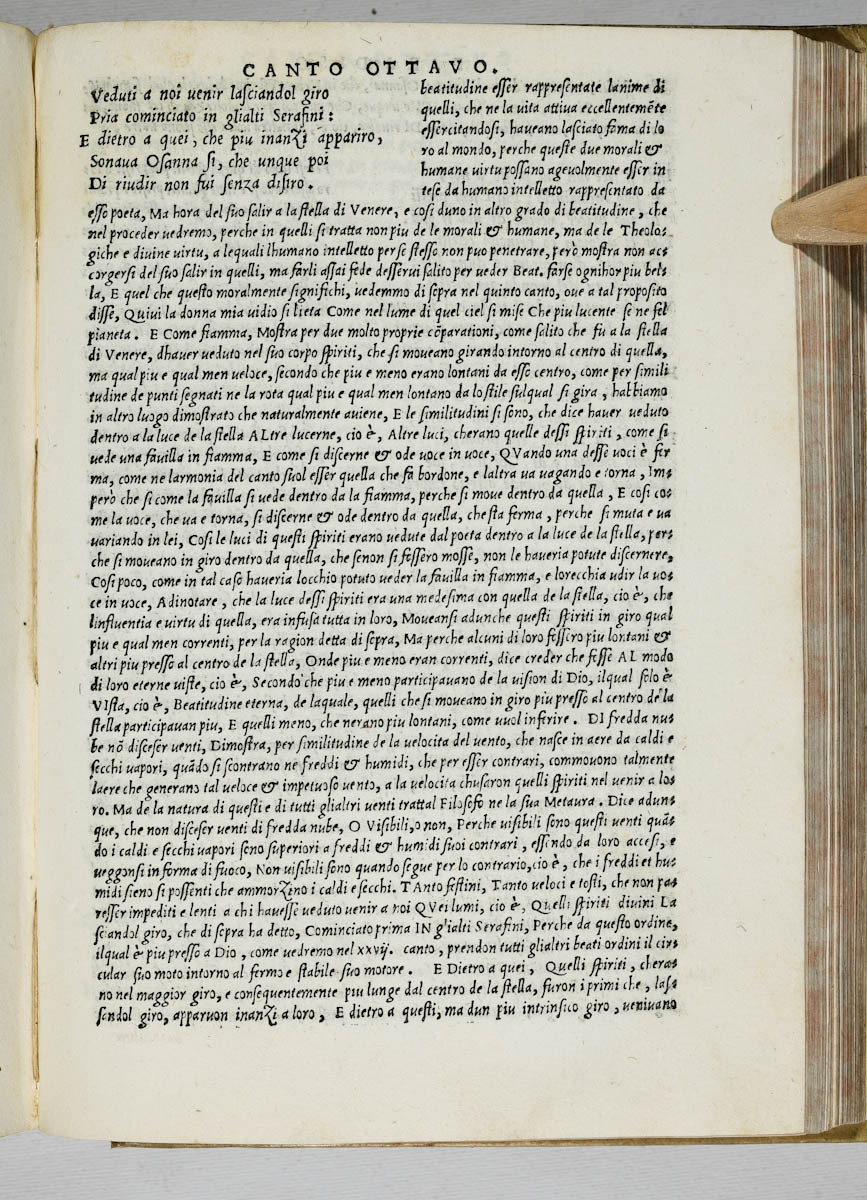 CANTO OTTAVO.
Veduti a noi uenir lasciandol giro
Pria cominciato in glialti Serafini:
E dietro a quei, che piu inanzi appariro,
Sonaua Osanna si, che unque poi
Di riudir non fui senza disiro.
beatitudine esser rappresentate lanime di
quelli, che ne la uita attiua eccellentemẽte
essercitandosi, haueano lasciato fama di lo
ro al mondo, perche queste due morali &
humane uirtu possano ageuolmente esser in
tese da humano intelletto rappresentato da
esso poeta, Ma hora del suo salir a la stella di Venere, e cosi duno in altro grado di beatitudine, che
nel proceder uedremo, perche in quelli si tratta non piu de le morali & humane, ma de le Theolo-
giche e diuine uirtu, a lequali lhumano intelletto per se stesso non puo penetrare, però mostra non ac-
corgersi del suo salir in quelli, ma farli assai fede desserui salito per ueder Beat. farse ognihor piu bel-
la, E quel che questo moralmente significhi, uedemmo di sopra nel quinto canto, oue a tal proposito
disse, Quiui la donna mia uidio si lieta Come nel lume di quel ciel si mise Che piu lucente se ne fel
pianeta. E Come fiamma, Mostra per due molto proprie cõparationi, come salito che fu a la stella
di Venere, dhauer ueduto nel suo corpo spiriti, che si moueano girando intorno al centro di quella,
ma qual piu e qual men ueloce, secondo che piu e meno erano lontani da esso centro, come per simili
tudine de punti segnati ne la rota qual piu e qual men lontano da lo stile sulqual si gira, habbiamo
in altro luogo dimostrato che naturalmente auiene, E le similitudini si sono, che dice hauer ueduto
dentro a la luce de la stella ALtre lucerne, cio è, Altre luci, cherano quelle dessi spiriti, come si
uede una fauilla in fiamma, E come si discerne & ode uoce in uoce, QVando una desse uoci è fer
ma, come ne larmonia del canto suol esser quella che fa bordone, e laltra ua uagando e torna, Im-
però che si come la fauilla si uede dentro da la fiamma, perche si moue dentro da quella, E cosi co-
me la uoce, che ua e torna, si discerne & ode dentro da quella, che sta ferma, perche si muta e ua
uariando in lei, Cosi le luci di questi spiriti erano uedute dal poeta dentro a la luce de la stella, per-
che si moueano in giro dentro da quella, che senon si fessero mosse, non le haueria potute discernere,
Cosi poco, come in tal caso haueria locchio potuto ueder la fauilla in fiamma, e lorecchia udir la uo-
ce in uoce, A dinotare, che la luce dessi spiriti era una medesima con quella de la stella, cio è, che
linfluentia e uirtu di quella, era infusa tutta in loro, Moueansi adunche questi spiriti in giro qual
piu e qual men correnti, per la ragion detta di sopra, Ma perche alcuni di loro fessero piu lontani &
altri piu presso al centro de la stella, Onde piu e meno eran correnti, dice creder che fesse AL modo
di loro eterne uiste, cio è, Secondo che piu e meno participauano de la uision di Dio, ilqual solo è
VIsta, cio è, Beatitudine eterna, de laquale, quelli che si moueano in giro piu presso al centro de la
stella participauan piu, E quelli meno, che nerano piu lontani, come uuol inferire. DI fredda nu-
be nõ disceser uenti, Dimostra, per similitudine de la uelocita del uento, che nasce in aere da caldi e
secchi uapori, quãdo si scontrano ne freddi & humidi, che per esser contrari, commouono talmente
laere che generano tal ueloce & impetuoso uento, a la uelocita chusaron quelli spiriti nel uenir a lo-
ro. Ma de la natura di questi e di tutti glialtri uenti trattal Filosofo ne la sua Metaura. Dice adun-
que, che non disceser uenti di fredda nube, O Visibili, o non, Perche uisibili sono questi uenti quã-
do i caldi e secchi uapori sono superiori a freddi & humidi suoi contrari, essendo da loro accesi, e
ueggonsi in forma di fuoco, Non uisibili sono quando segue per lo contrario, cio è, che i freddi et hu-
midi sieno si possenti che ammorzino i caldi e secchi. TAnto festini, Tanto ueloci e tosti, che non pa-
resser impediti e lenti a chi hauesse ueduto uenir a noi QVei lumi, cio è, Quelli spiriti diuini La
sciandol giro, che di sopra ha detto, Cominciato prima IN glialti Serafini, Perche da questo ordine,
ilqual è piu presso a Dio, come uedremo nel xxvij. canto, prendon tutti glialtri beati ordini il cir-
cular suo moto intorno al fermo e stabile suo motore. E Dietro a quei, Quelli spiriti, chera-
no nel maggior giro, e consequentemente piu lunge dal centro de la stella, furon i primi che, las-
sandol giro, apparuon inanzi a loro, E dietro a questi, ma dun piu intrinsico giro, ueniuano